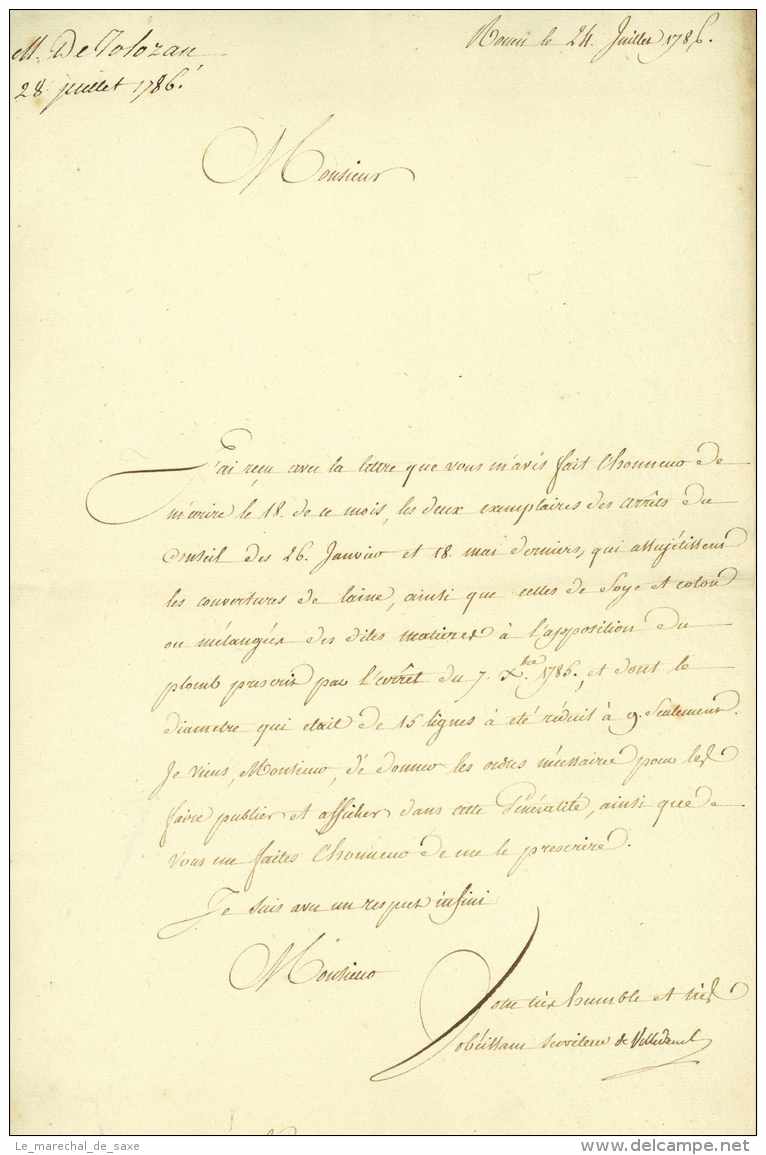 M. De Tolozan
28 juillet 1786.
Rouen le 24. Juillet 1786.
Monsieur
J'ai reçu avec la lettre que vous m'avés fait l'honneur de
m'écrire le 18. de ce mois, les deux exemplaires des arrêts du
Conseil des 26. Janvier et 18. mai derniers, qui assujétissent
les couvertures de laine, ainsi que celles de Soye et coton
ou mélangées des dites matieres à l'apposition du
plomb prescrit par l'arrêt du 7. Xbre. 1785, et dont le
diametre qui était de 15 lignes à été réduit à 9. Seulement.
Je viens, Monsieur, de donner les ordres nécessaires pour les
faire publier et afficher dans cette Généralité, ainsi que
vous me faites l'honneur de me le prescrire.
Je suis avec un respect infini
Monsieur
Votre très humble et très
obéissant serviteur de Villedeuil
Le_marechal_de_saxe
www.delcampe.net